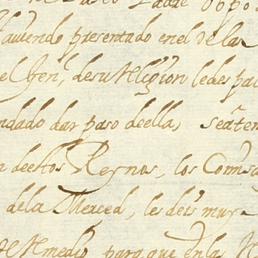 hauiendo presentado enel de las
el Gen, desu Religion ledes pac
ndado dar paso deella, seaten
dechos Reynos, los Comss
dela Merced, les deis muy
Remedio para que en la